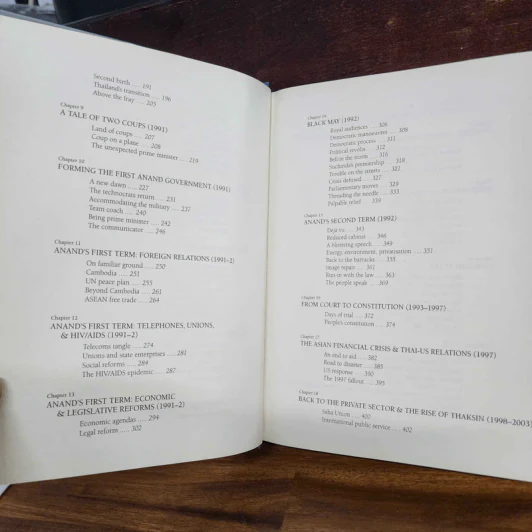 Second birth .... 191
Thailand's transition .... 196
Above the fray .... 205
Chapter 9
A TALE OF TWO COUPS (1991)
Land of coups .... 207
Coup on a plane .... 208
The unexpected prime minister .... 218
Chapter 10
FORMING THE FIRST ANAND GOVERNMENT (1991)
A new dawn .... 227
The technocrats return .... 231
Accommodating the military .... 237
Team coach .... 240
Being prime minister .... 242
The communicator .... 246
Chapter 11
ANAND'S FIRST TERM: FOREIGN RELATIONS (1991–2)
On familiar ground .... 250
Cambodia .... 251
UN peace plan .... 255
Beyond Cambodia .... 261
ASEAN free trade .... 264
Chapter 12
ANAND'S FIRST TERM: TELEPHONES, UNIONS,
& HIV/AIDS (1991–2)
Telecoms tangle .... 274
Unions and state enterprises .... 281
Social reforms .... 284
The HIV/AIDS epidemic .... 287
Chapter 13
ANAND'S FIRST TERM: ECONOMIC
& LEGISLATIVE REFORMS (1991–2)
Economic agendas .... 294
Legal reform .... 302
Chapter 14
BLACK MAY (1992)
Royal audiences .... 306
Democratic manoeuvres .... 308
Democratic process .... 311
Political revolts .... 312
Before the storm .... 316
Suchinda's premiership .... 318
Trouble on the streets .... 321
Crisis defused .... 327
Parliamentary moves .... 329
Threading the needle .... 333
Palpable relief .... 339
Chapter 15
ANAND'S SECOND TERM (1992)
Déjà vu .... 345
Restored cabinet .... 346
A blistering speech .... 349
Energy, environment, privatisation .... 351
Back to the barracks .... 355
Image repair .... 361
Run-in with the law .... 363
The people speak .... 369
Chapter 16
FROM COURT TO CONSTITUTION (1993–1997)
Days of trial .... 372
People's constitution .... 374
Chapter 17
THE ASIAN FINANCIAL CRISIS & THAI-US RELATIONS (1997)
An end to aid .... 382
Road to disaster .... 385
US response .... 390
The 1997 fallout .... 395
Chapter 18
BACK TO THE PRIVATE SECTOR & THE RISE OF THAKSIN (1998–2003)
Saha Union .... 400
International public service .... 402